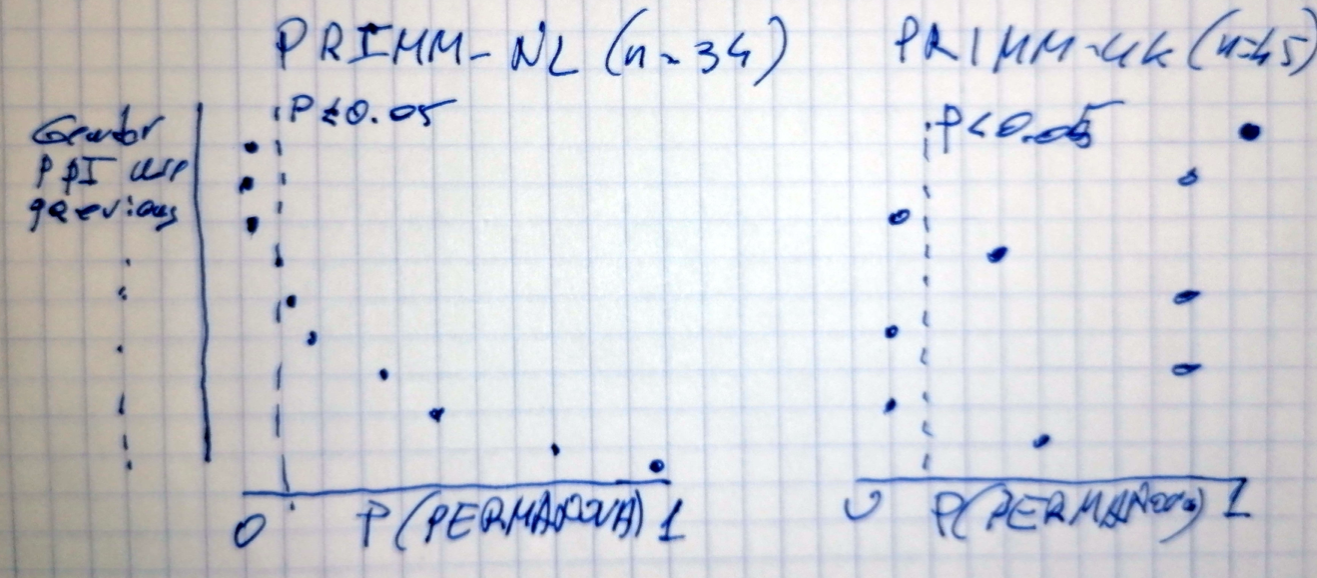 PRIMM-NL (n=34)
PRIMM-UK (n=45)
P<0.05
P<0.05
Gender
PPI use
previous
0 P(PERMANOVA) 1
0 P(PERMANOVA) 1